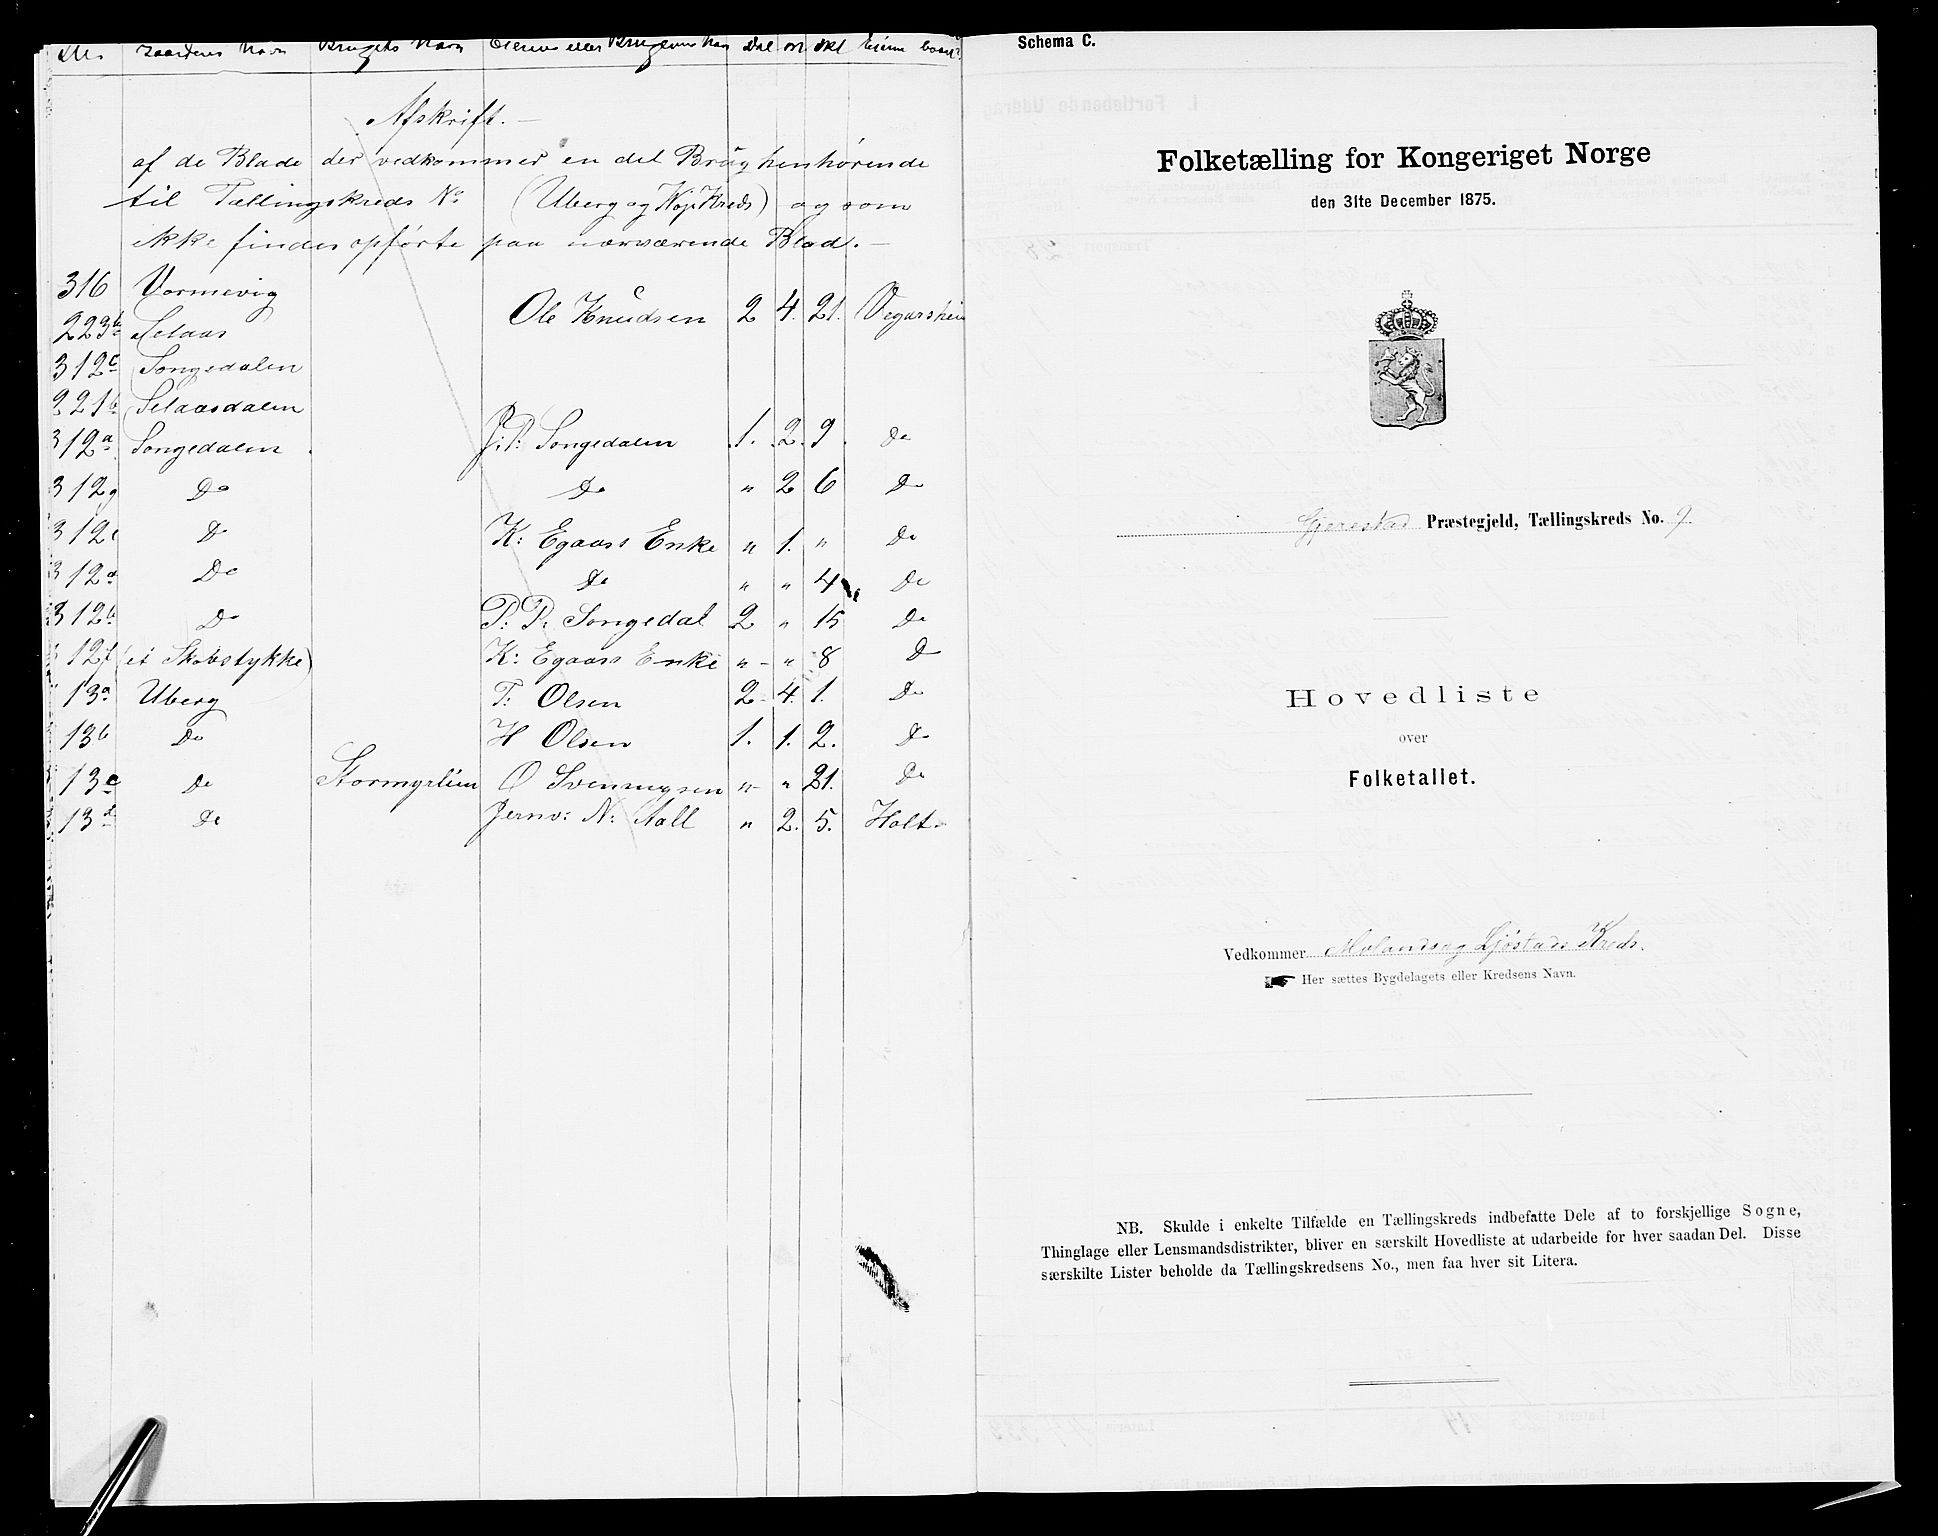 Gaardens Navn Brugets Navn Eierens eller Brugerens Navn Dal ort skl Eieren boer?
Afskrift.—
af de Blade der vedkommer en del Brug henhørende
til Tællingskreds No (Uberg og Høj Kreds) og som
ikke findes opførte paa nærværende Blad.—
316 Vormevig
223b Selaas Ole Knudsen 2 4. 21. Vegarsheien
312c Songedalen
221b Selaasdalen
312a Songedalen J. P. Songedalen 1. 2. 9. Do
312g Do Do " 2 6 Do
312e Do K: Egaass Enke " 1. " Do
312d Do Do " " 4 Do
312b Do P. P. Songedal 2 " 15 Do
12f (et Skovstykke) K: Egaass Enke " " 8 Do
13a Uberg T: Olsen 2 4. 1. Do
13b Do H Olsen 1. 1. 2. Do
13c Do Stormyrlien O Svenningsen " " 21. Do
13d Do Jernv: N: Aall " 2. 5. Holt
Schema C.
Folketælling for Kongeriget Norge
den 31te December 1875.
Gjerestad Præstegjeld, Tællingskreds No. 9.
Hovedliste
over
Folketallet.
Vedkommer Molands og Ljøstads Kreds.
Her sættes Bygdelagets eller Kredsens Navn.
NB. Skulde i enkelte Tilfælde en Tællingskreds indbefatte Dele af to forskjellige Sogne,
Thinglage eller Lensmandsdistrikter, bliver en særskilt Hovedliste at udarbeide for hver saadan Del. Disse
særskilte Lister beholde da Tællingskredsens No., men faa hver sit Litera.